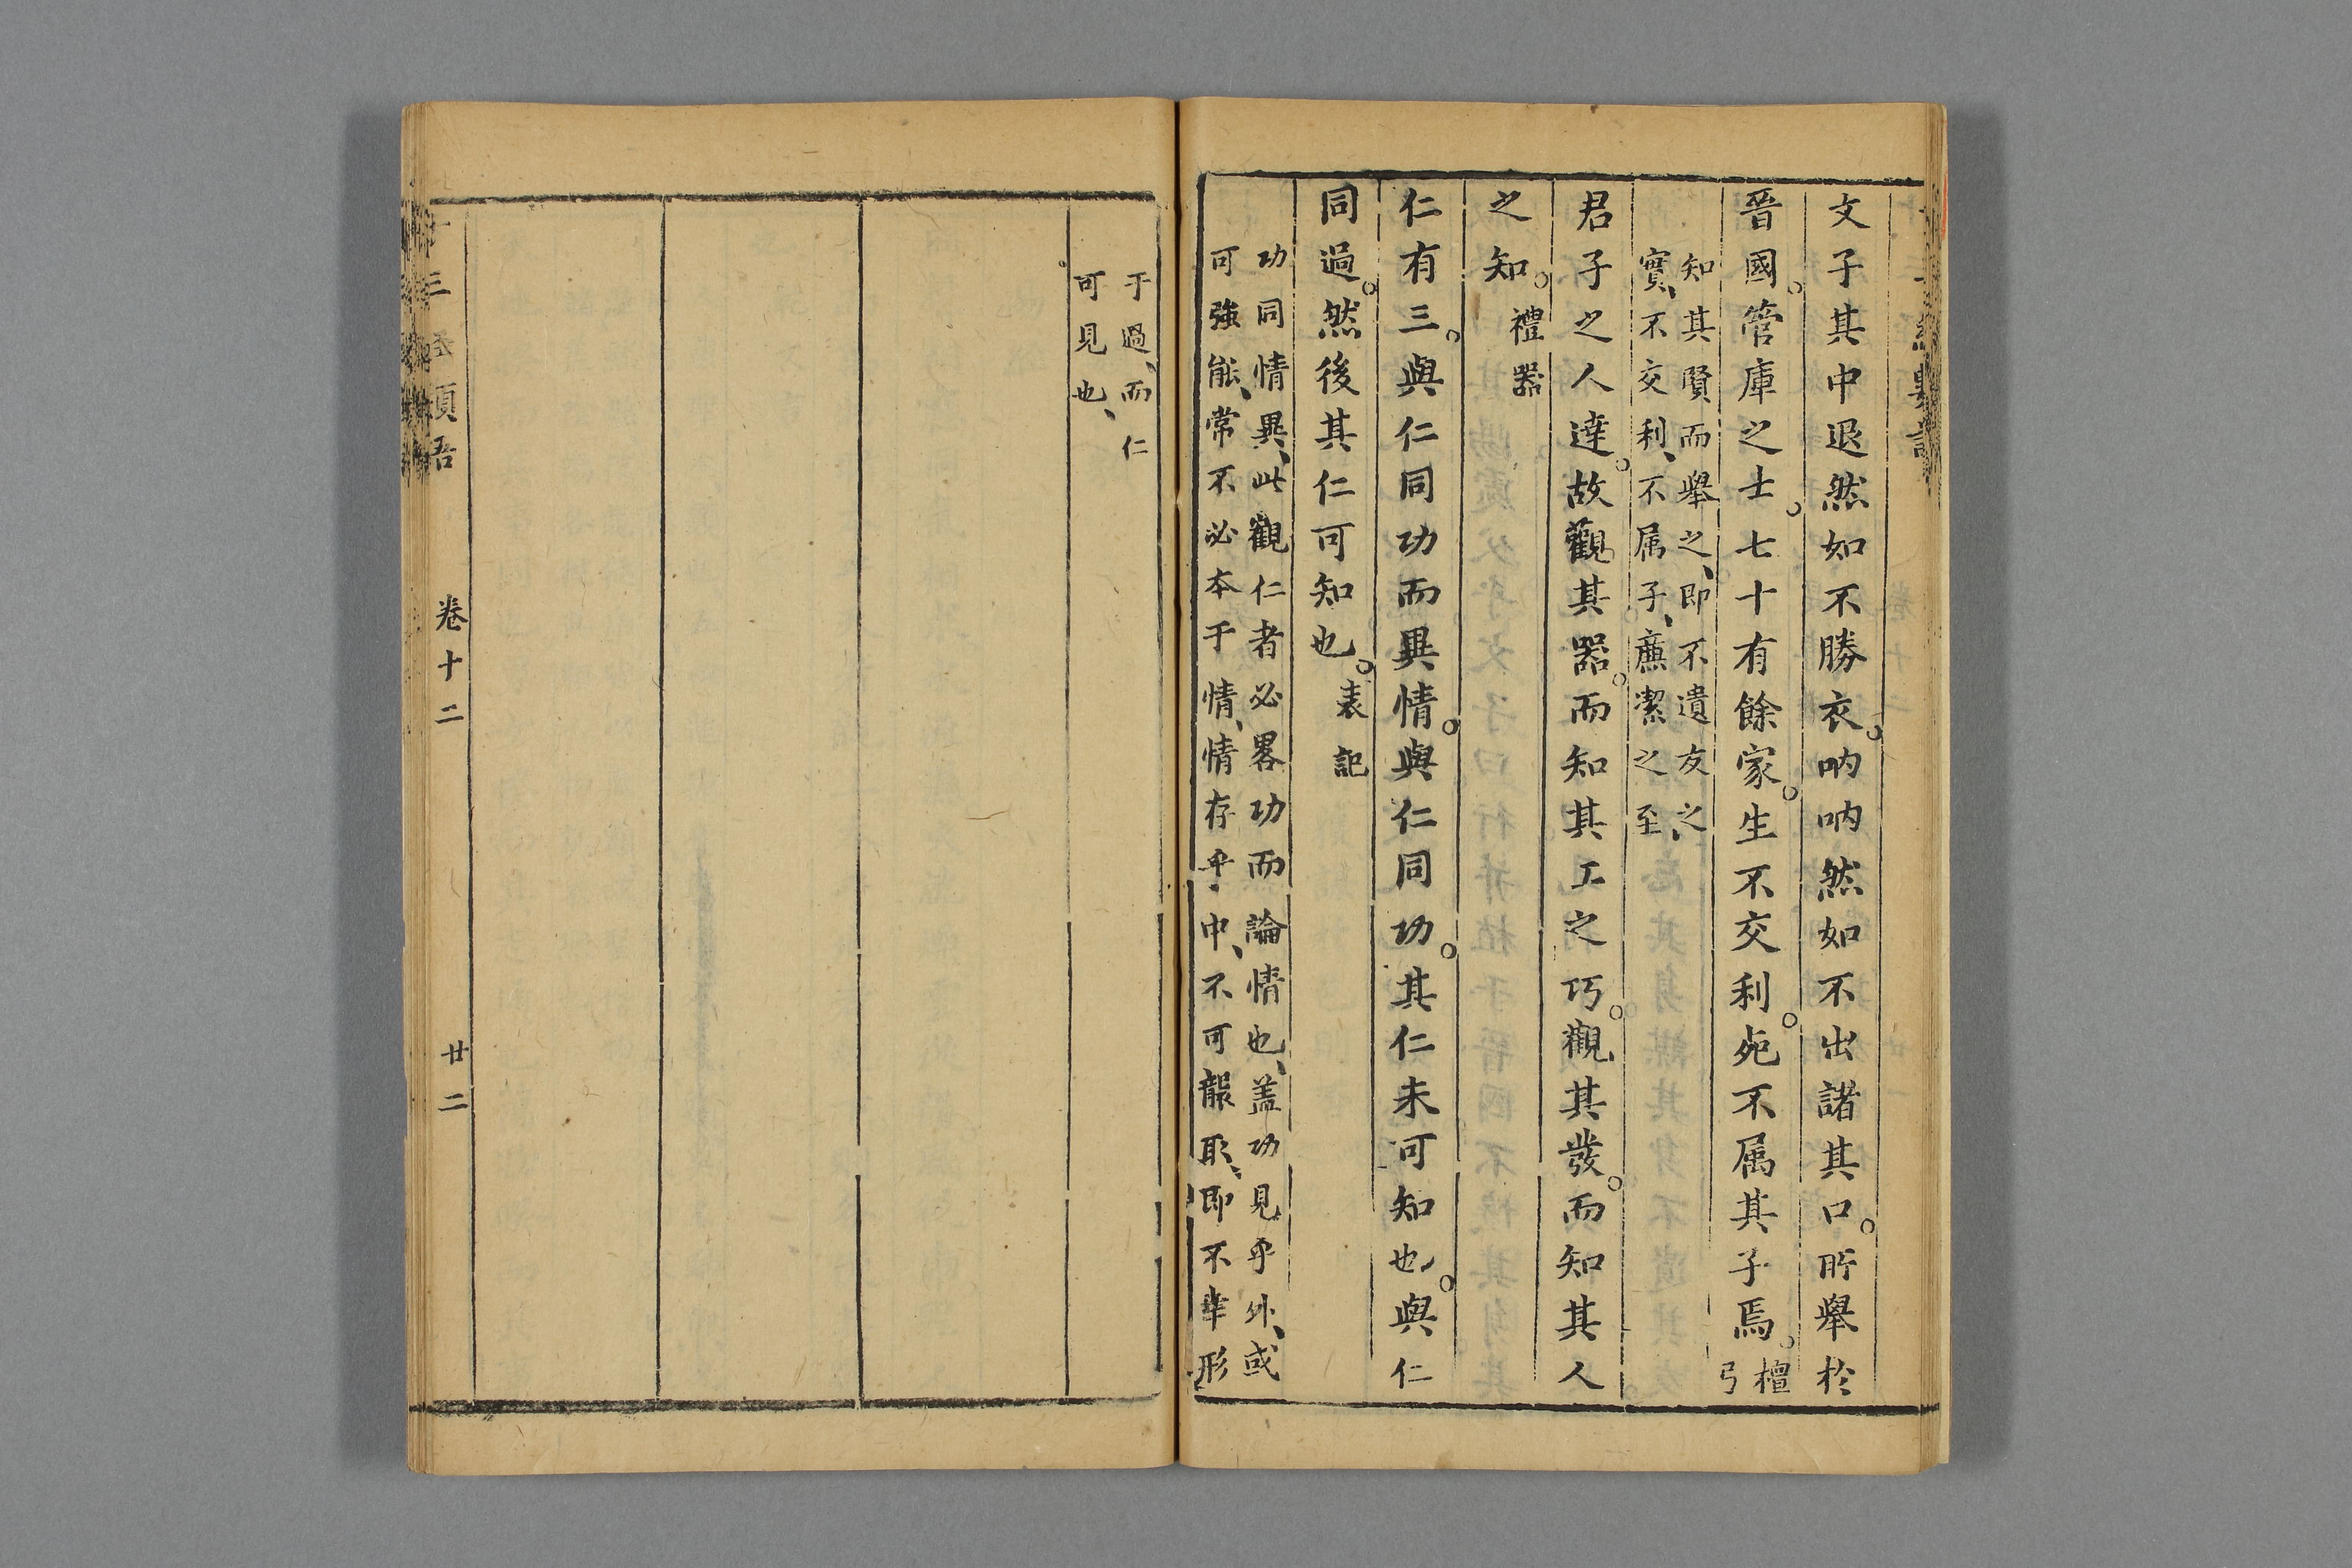 文子其中退然如不勝衣。呐呐然如不出諸其口。所舉於
晉國。管庫之士。七十有餘家。生不交利。死不属其子焉。檀弓
知其賢而舉之、即不遺友之、
實、不交利、不属子、廉潔之至
君子之人達。故觀其器。而知其工之巧。觀其發。而知其人
之知。禮器
仁有三。與仁同功而異情。與仁同功。其仁未可知也。與仁
同過。然後其仁可知也。表記
功同情異、此觀仁者必畧功而論情也、盖功見乎外、或
可強能、常不必本于情、情存乎中、不可襲取、即不幸形
于過、而仁
可見也、
卷十二
廿二